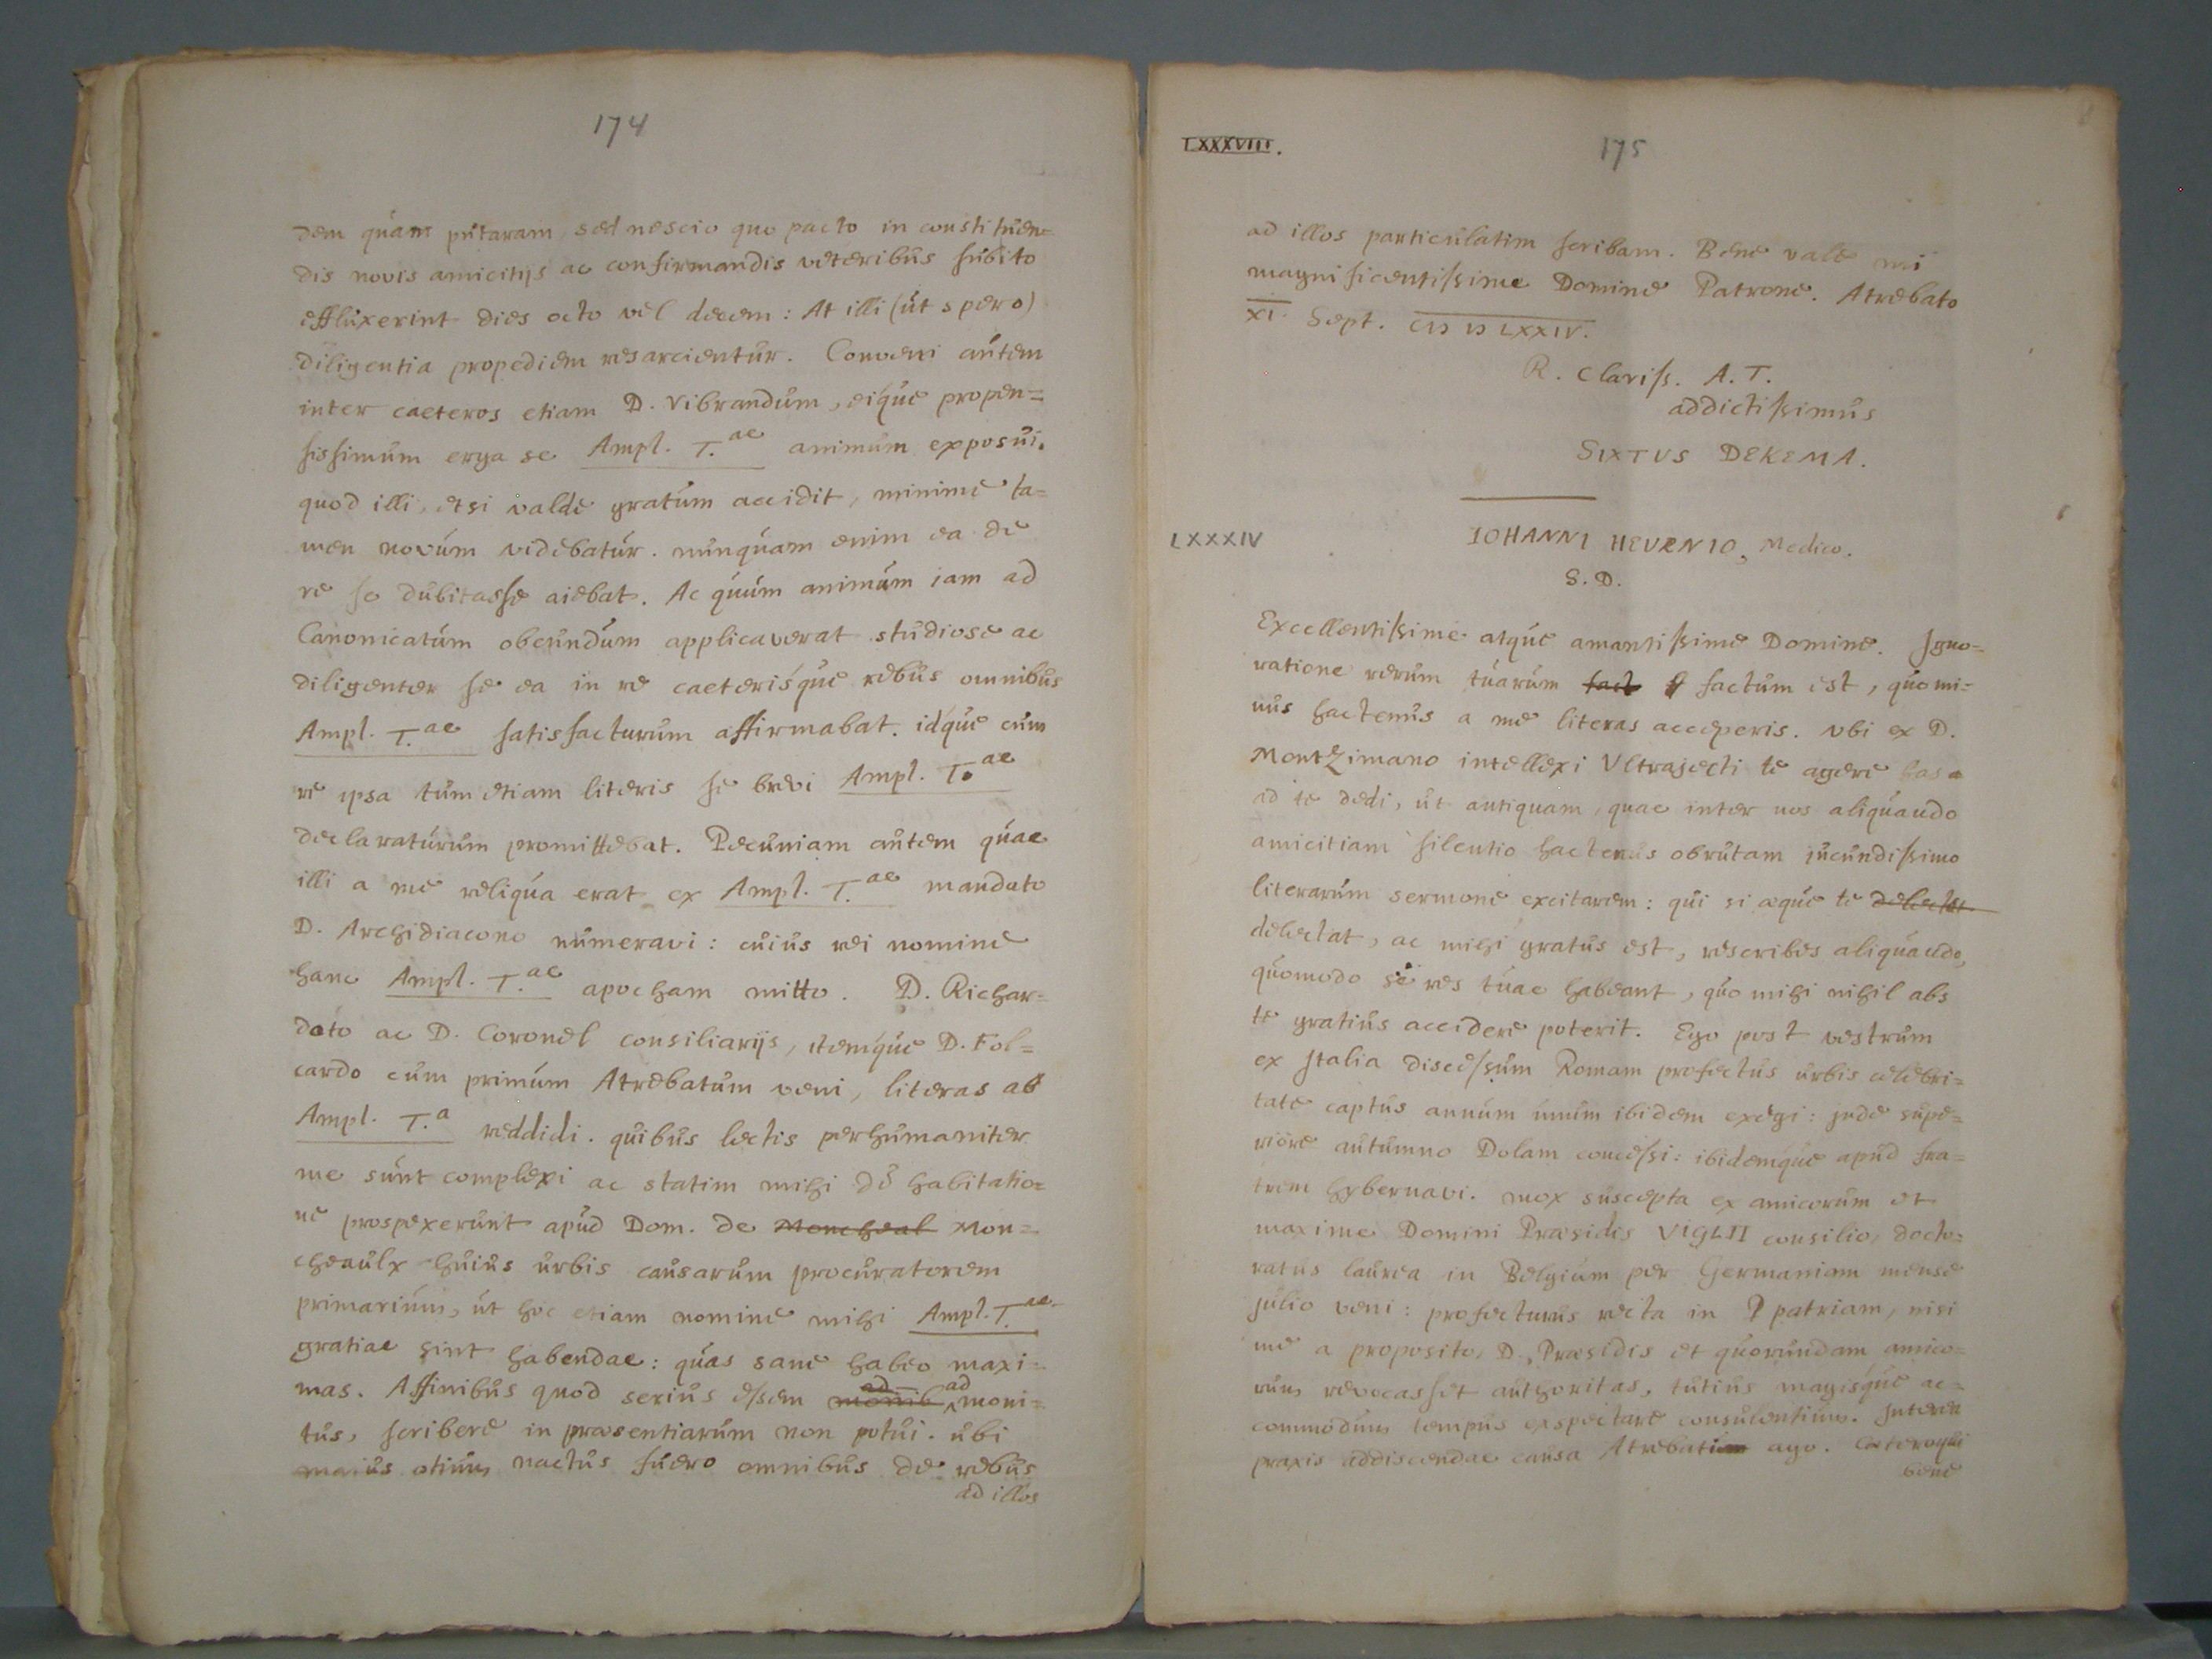 174
dem quam putaram, sed nescio quo pacto in constituen=
dis novis amicitijs ac confirmandis veteribus subito
effluxerint dies octo vel decem: At illi (ut spero)
diligentia propediem resarcientur. Conveni autem
inter caeteros etiam D. Vibrandum, eique propen=
sissimum erga se Ampl. T.ae animum exposui.
quod illi, etsi valde gratum accidit, minime ta=
men novum videbatur. nunquam enim ea de
re se dubitasse aiebat. Ac quum animum iam ad
Canonicatum obeundum applicaverat studiose ac
diligenter se ea in re caeterisque rebus omnibus
Ampl. T.ae satisfacturum affirmabat. idque cum
re ipsa tum etiam literis se brevi Ampl. T.ae
declaraturum promittebat. Pecuniam autem quae
illi a me reliqua erat ex Ampl. T.ae mandato
D. Archidiacono numeravi: cuius rei nomine
hanc Ampl. T.ae apocham mitto. D. Richar=
doto ac D. Coronel consiliarijs, itemque D. Fol=
cardo cum primum Atrebatum veni, literas ab
Ampl. T.a reddidi. quibus lectis perhumaniter
me sunt complexi ac statim mihi de habitatio=
ne prospexerunt apud Dom. de Moncheal Mon=
cheaulx huius urbis causarum procuratorem
primarium, ut hoc etiam nomine mihi Ampl. T.ae
gratiae sint habendae: quas sane habeo maxi=
mas. Affinibus quod serius essem ad moni=
tus, scribere in praesentiarum non potui. ubi
maius otium nactus fuero omnibus de rebus
ad illos
LXXXVIII.
175
ad illos particulatim scribam. Bene vale mi
magnificentissime Domine Patrone. Atrebato
XI. Sept. CIↃ IↃ LXXIV.
R. Clariss. A. T.
addictissimus
SIXTVS DEKEMA.
LXXXIV
IOHANNI HEVRNIO, Medico.
S. D.
Excellentissime atque amantissime Domine. Igno=
ratione rerum tuarum fact factum est, quomi=
nus hactenus a me literas acceperis. Vbi ex D.
Montzimano intellexi Vltrajecti te agere has
ad te dedi, ut antiquam, quae inter nos aliquando
amicitiam silentio hactenus obrutam jucundissimo
literarum sermone excitarem: qui si aeque te delectat
delectat, ac mihi gratus est, rescribes aliquando,
quomodo se res tuae habeant, quo mihi nihil abs
te gratius accidere poterit. Ego post vestrum
ex Italia discessum Romam profectus urbis celebri=
tate captus annum unum ibidem exegi: jnde supe=
riore autumno Dolam concessi: ibidemque apud fra=
trem hybernavi. mox suscepta ex amicorum et
maxime Domini Praesidis VIGLII consilio, docto=
ratus laurea in Belgium per Germaniam mense
julio veni: profecturus recta in P patriam, nisi
me a proposito, D. Praesidis et quorundam amico=
rum revocasset authoritas, tutius magisque ac=
commodum tempus exspectare consulentium. Interea
praxis addiscendae causa Atrebati ago. Caeteroqui
bene